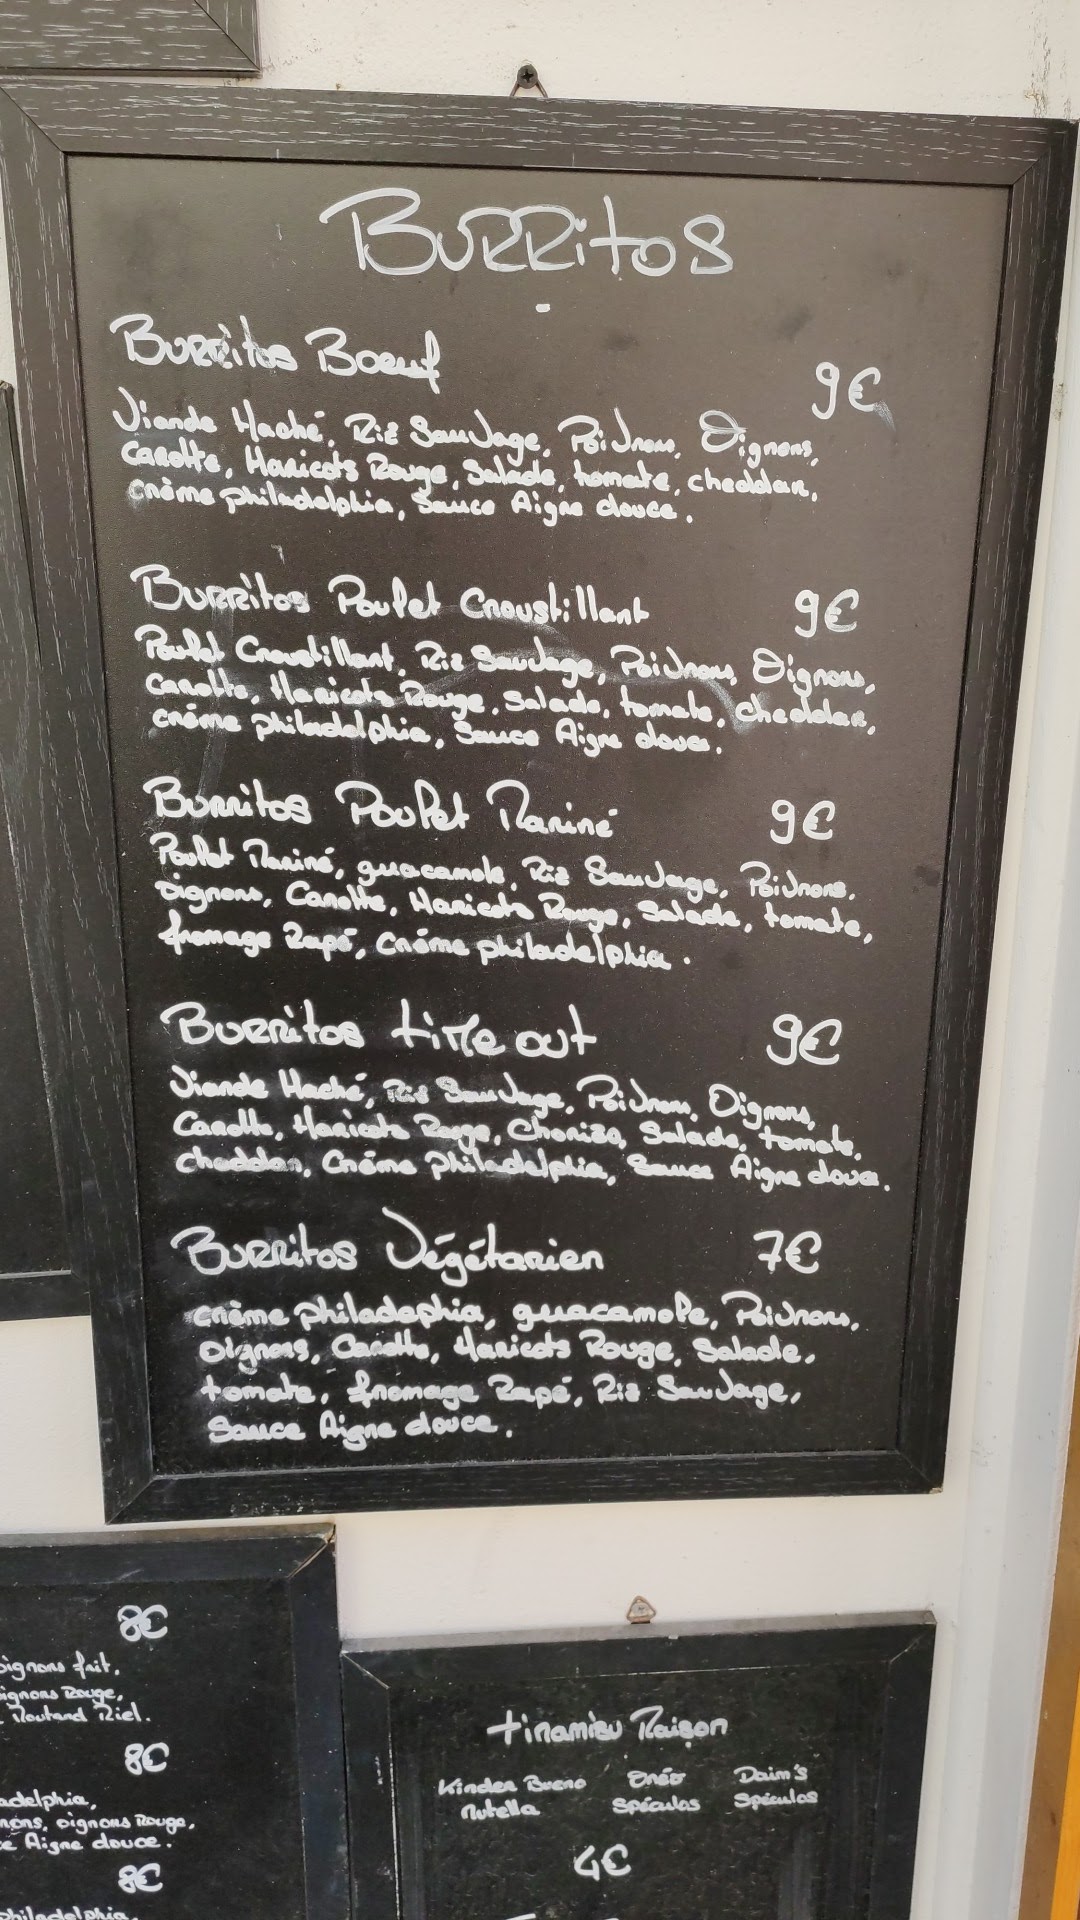 Burritos
-
Burritos Boeuf 9€
Viande Haché, Riz Sauvage, Poivrons, Oignons,
Carotte, Haricots Rouge, Salade, tomate, cheddar,
crème philadelphia, Sauce Aigre douce.
Burritos Poulet Croustillant 9€
Poulet Croustillant, Riz Sauvage, Poivrons, Oignons,
Carotte, Haricots Rouge, Salade, tomate, cheddar,
crème philadelphia, Sauce Aigre douce.
Burritos Poulet Mariné 9€
Poulet Mariné, guacamole, Riz Sauvage, Poivrons,
oignons, Carotte, Haricots Rouge, Salade, tomate,
fromage Rapé, créme philadelphia.
Burritos time out 9€
Viande Haché, Riz Sauvage, Poivrons, Oignons,
Carotte, Haricots Rouge, Chorizo, Salade, tomate,
cheddar, Créme Philadelphia, Sauce Aigre douce.
Burritos Végétarien 7€
crème philadephia, guacamole, Poivrons,
oignons, Carotte, Haricots Rouge, Salade,
tomate, fromage Rapé, Riz Sauvage,
Sauce Aigre douce.
8€
oignons frit,
oignons Rouge,
Moutard Miel.
8€
adelphia,
rons, oignons Rouge,
Aigre douce.
8€
philadelphia,
tiramisu Maison
Kinder Bueno Oréo Daim's
Nutella Spéculos Spéculos
4€